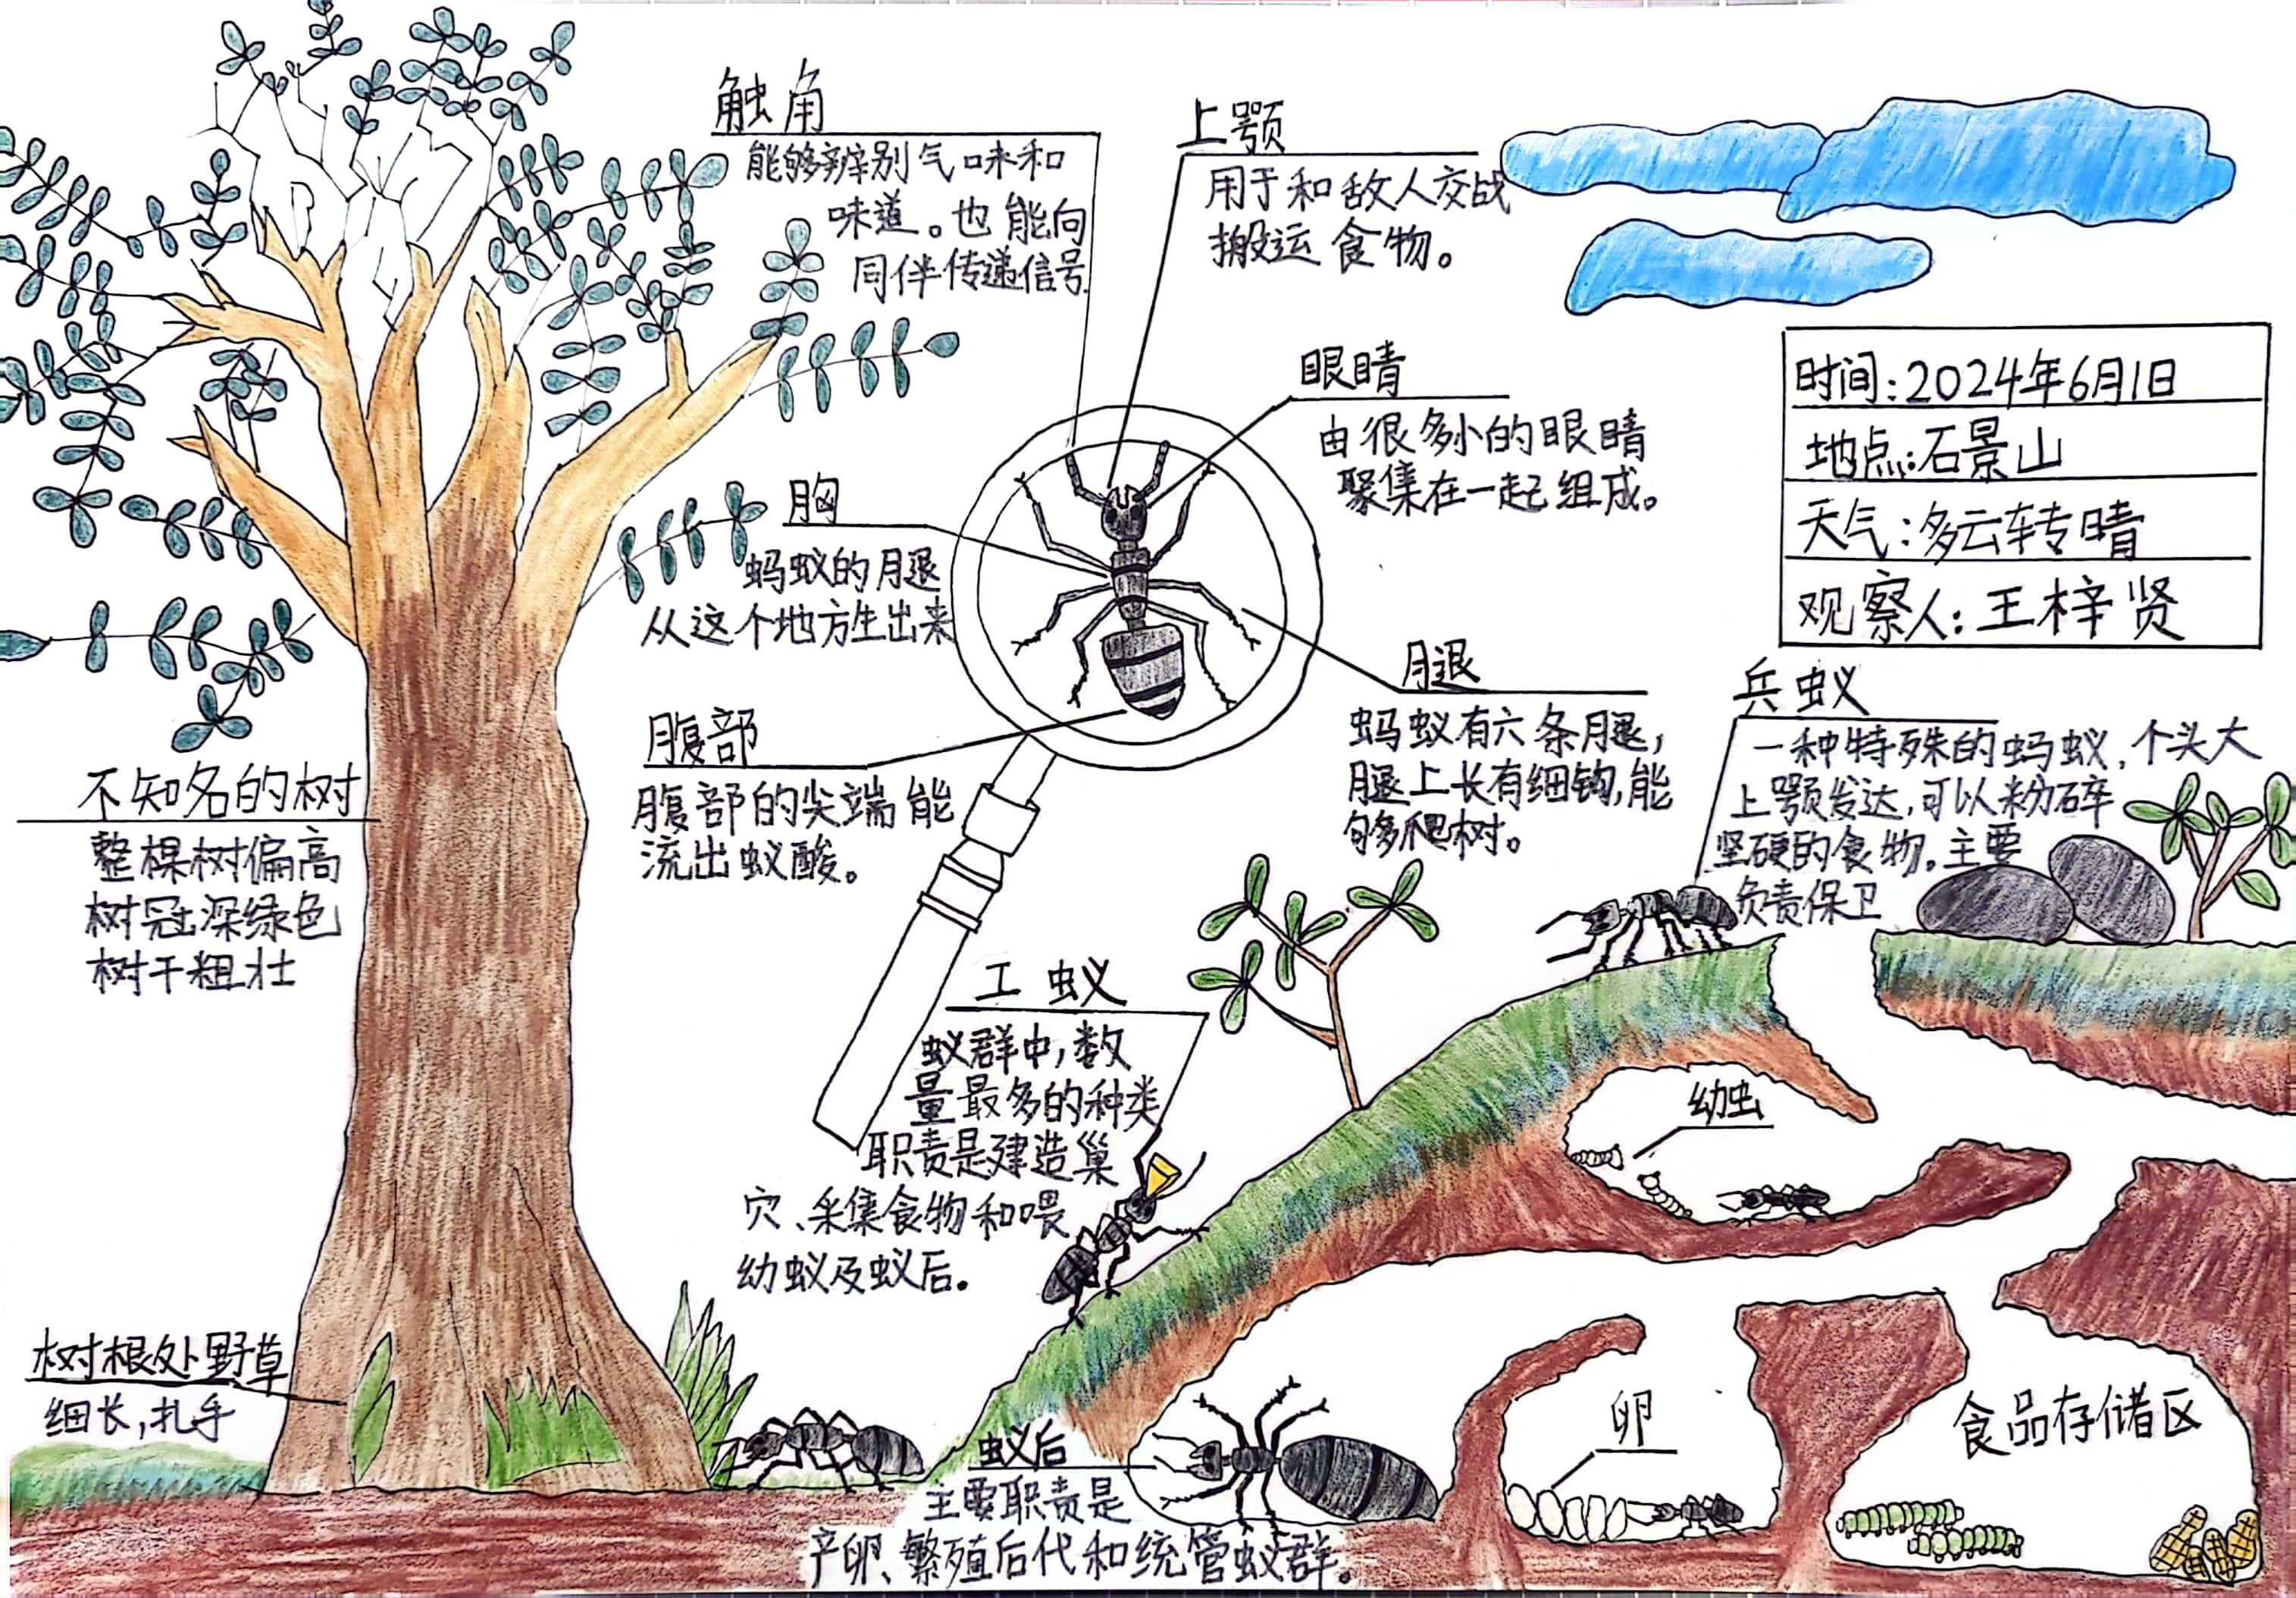 触角
能够辨别气味和
味道。也能向
同伴传递信号
上颚
用于和敌人交战
搬运食物。
眼睛
由很多小的眼睛
聚集在一起组成。
时间:2024年6月1日
地点:石景山
天气:多云转晴
观察人:王梓贤
胸
蚂蚁的腿
从这个地方生出来
腹部
腹部的尖端能
流出蚁酸。
腿
蚂蚁有六条腿,
腿上长有细钩,能
够爬树。
兵蚁
一种特殊的蚂蚁,个头大
上颚发达,可以粉碎
坚硬的食物。主要
负责保卫
不知名的树
整棵树偏高
树冠深绿色
树干粗壮
工蚁
蚁群中,数
量最多的种类
职责是建造巢
穴、采集食物和喂
幼蚁及蚁后。
幼虫
树根处野草
细长,扎手
蚁后
主要职责是
产卵、繁殖后代和统管蚁群。
卵
食品存储区